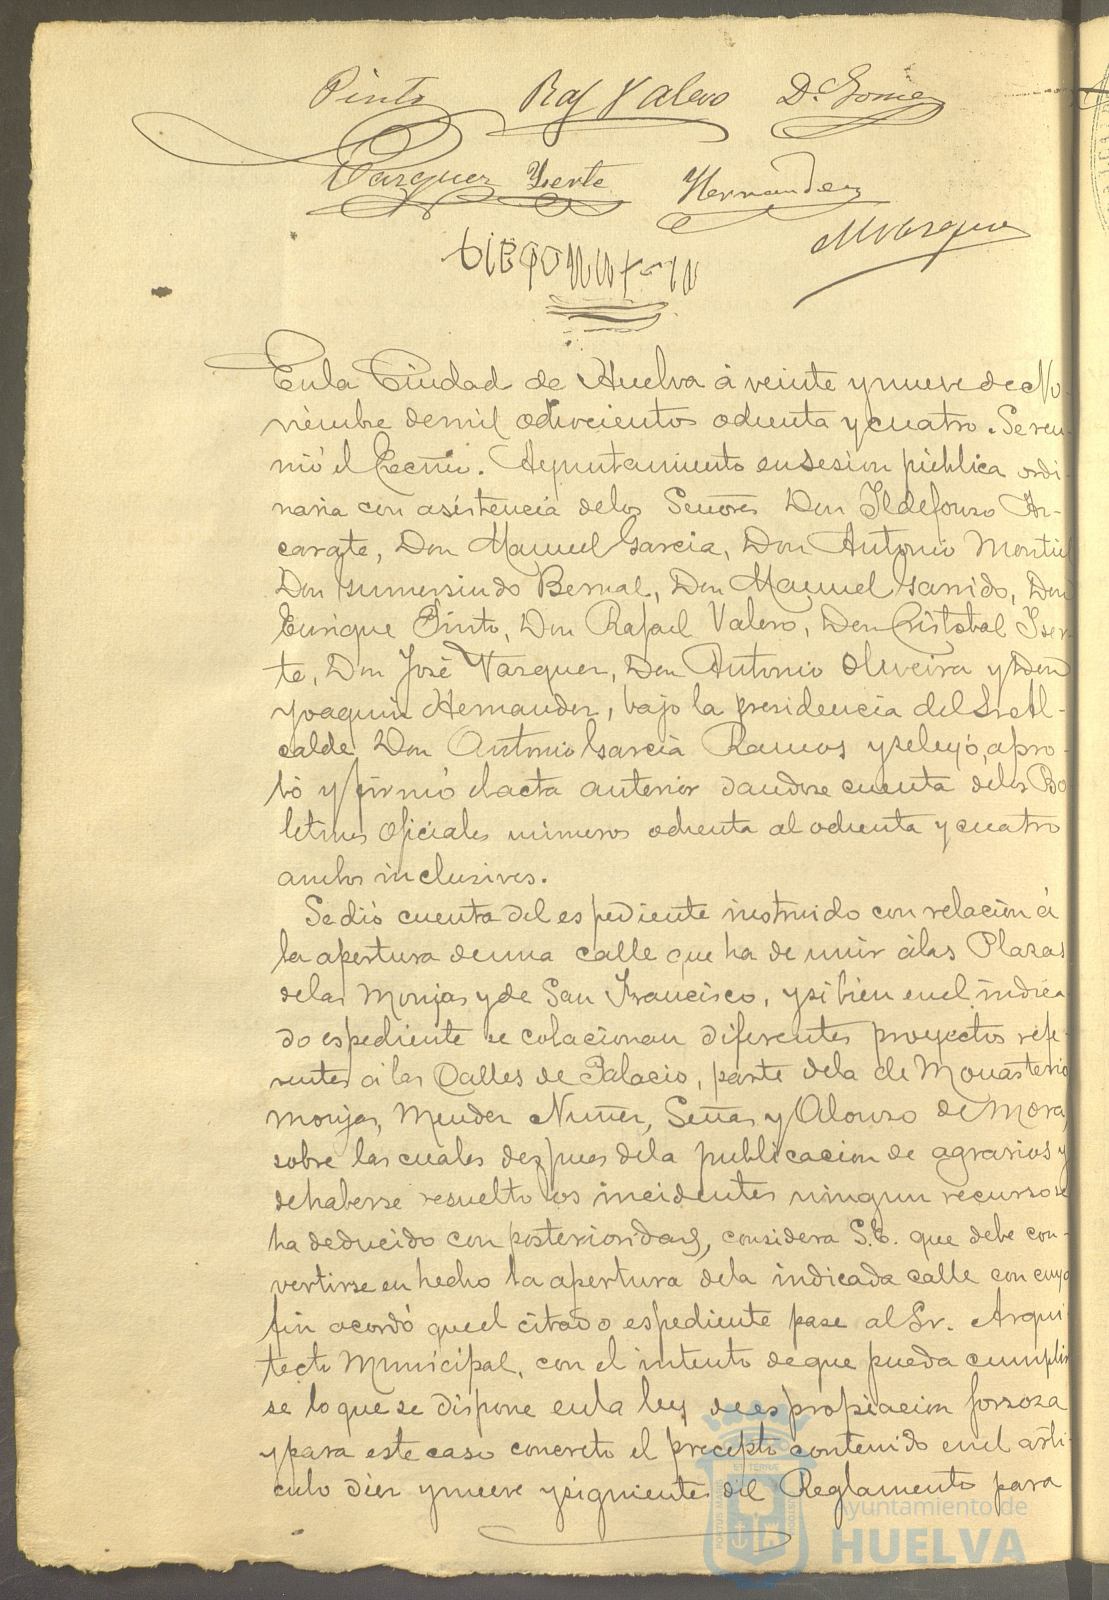 Pinto Raf Valero D. Gomez
Vazquez Yserte Hernandez
M Vazquez
En la Ciudad de Huelva á veinte y nueve de No-
viembre de mil ochocientos ochenta y cuatro. Se reu-
nió el Excmo. Ayuntamiento en sesion pública ordi-
naria con asistencia de los Señores Don Ildefonso Az-
carate, Don Manuel Garcia, Don Antonio Montiel
Don Gumersindo Bernal, Don Manuel Garrido, Don
Enrique Pinto, Don Rafael Valero, Don Cristobal Yser-
te, Don José Vazquez, Don Antonio Oliveira y Don
Joaquin Hernandez, bajo la presidencia del Sr. Al-
calde Don Antonio Garcia Ramos y se leyó, apro-
bó y firmó el acta anterior dandose cuenta de los Bo
letines oficiales numeros ochenta al ochenta y cuatro
ambos inclusives.
Se dió cuenta del espediente instruido con relacion á
la apertura de una calle que ha de unir á las Plazas
de las Monjas y de San Francisco, y si bien en el indica-
do espediente se colacionan diferentes proyectos refe-
rentes á las Calles de Palacio, parte de la de Monasterio
Monjas, Mendez Nuñez, Señas y Alonso de Mora,
sobre las cuales despues de la publicacion de agravios y
de haberse resuelto los incidentes ningun recurso se
ha deducido con posterioridad, considera S.E. que debe con-
vertirse en hecho la apertura de la indicada calle con cuyo
fin acordó que el citado espediente pase al Sr. Arqui-
tecto Municipal, con el intento de que pueda cumplir
se lo que se dispone en la ley de espropiacion forzoza
y para este caso concreto el precepto contenido en el arti-
culo diez y nueve y siguientes del Reglamento para
Ayuntamiento de
HUELVA